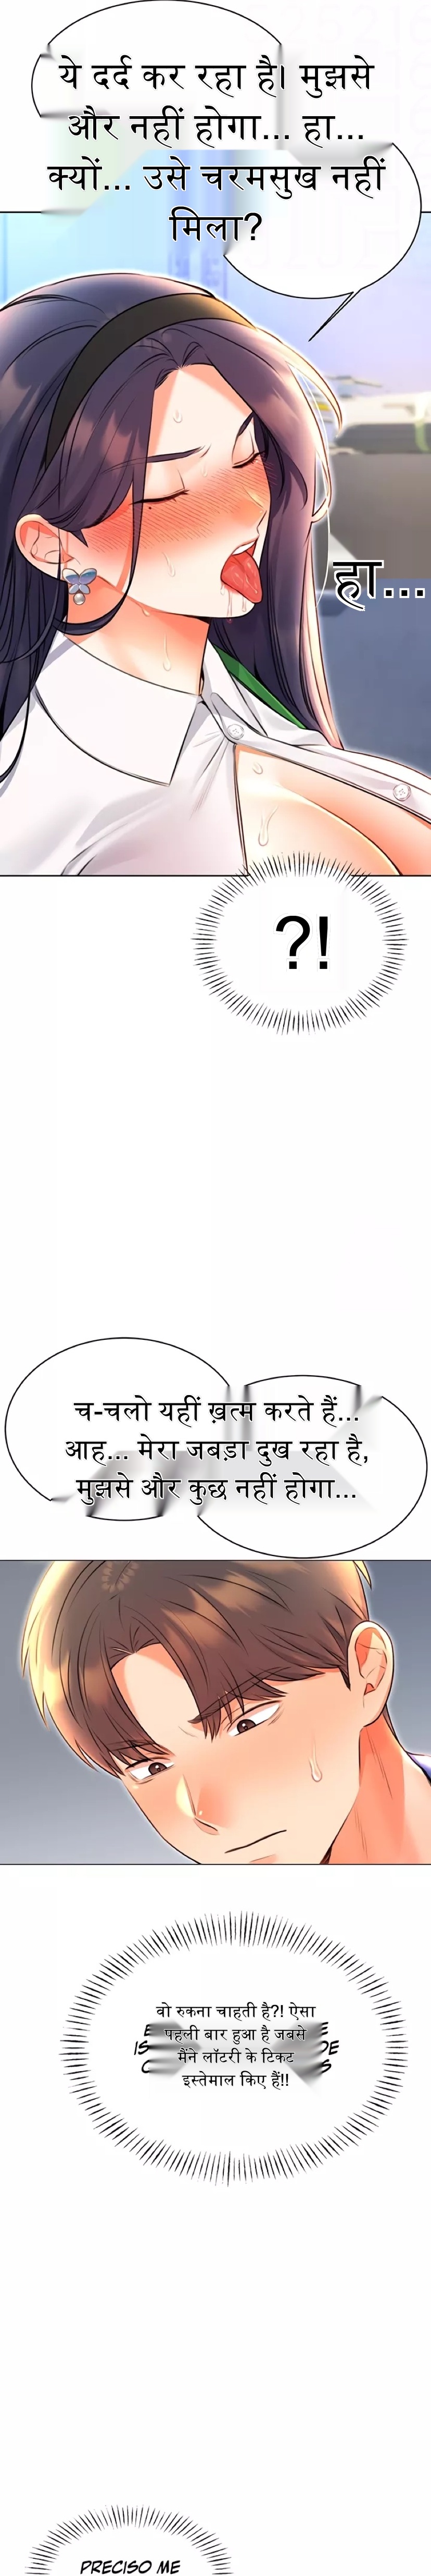 ये दर्द कर रहा है। मुझसे
और नहीं होगा... हा...
क्यों... उसे चरमसुख नहीं
मिला?
हा...
?!
च-चलो यहीं ख़त्म करते हैं...
आह... मेरा जबड़ा दुख रहा है,
मुझसे और कुछ नहीं होगा...
वो रुकना चाहती है?! ऐसा
पहली बार हुआ है जबसे
मैंने लॉटरी के टिकट
इस्तेमाल किए हैं!!
PRECISO ME